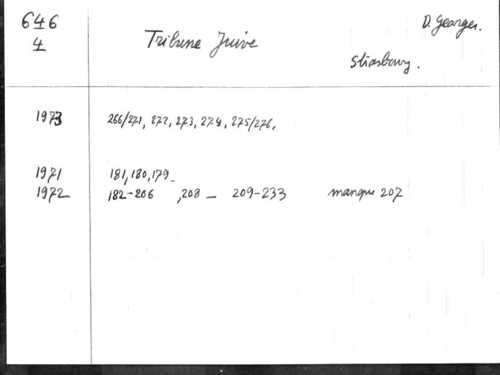 646
4
D. Georges.
Tribune Juive
Strasbourg.
1973 266/271, 272, 273, 274, 275/276.
1971 181, 180, 179_
1972 182-206 ,208 _ 209-233 manque 207